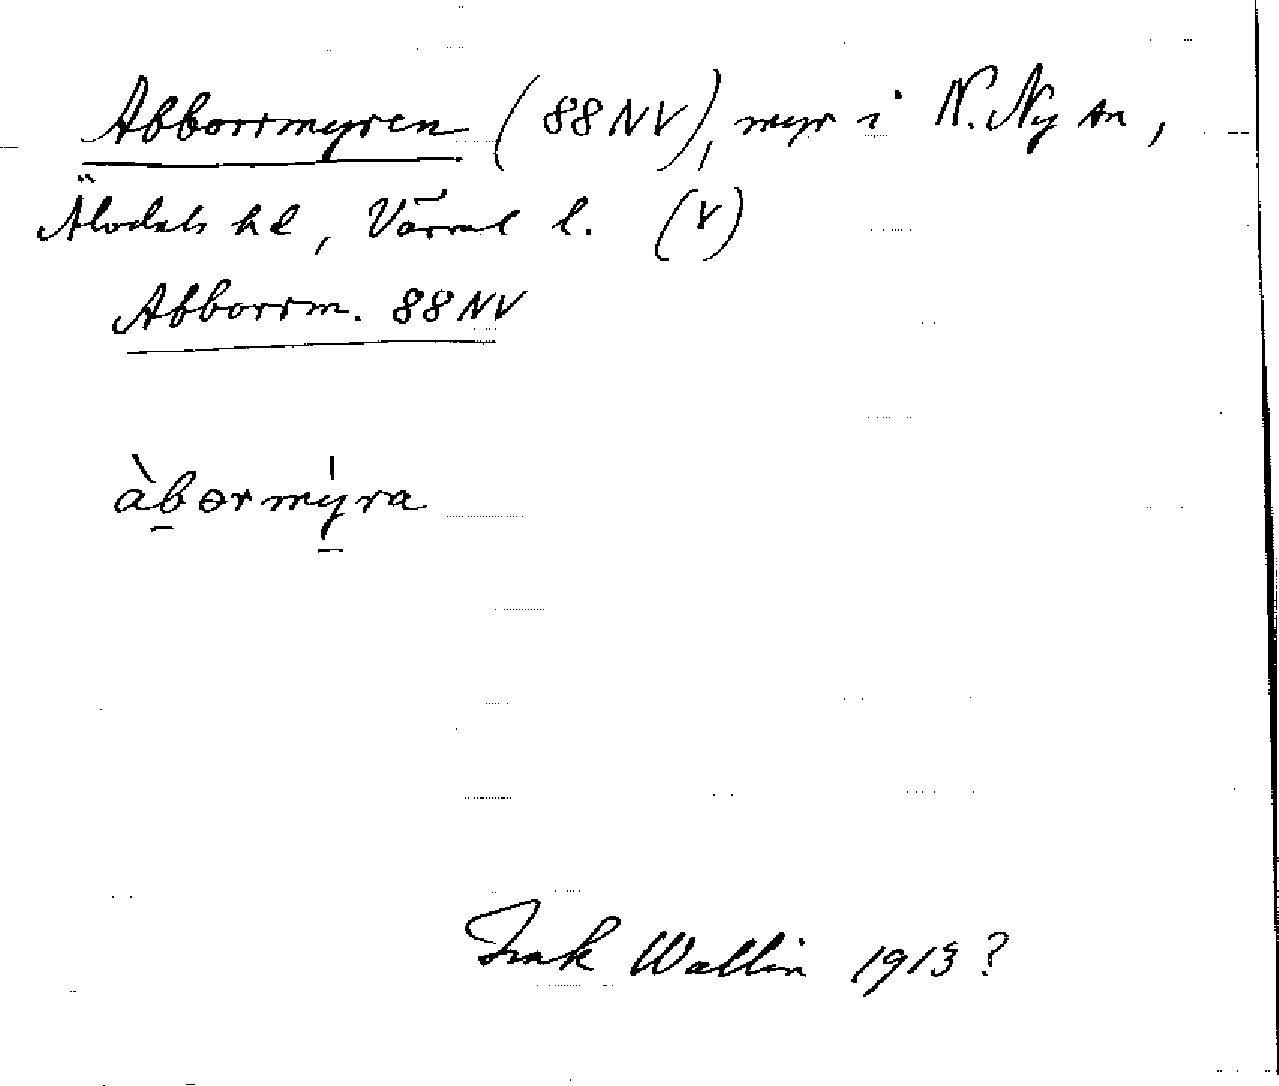 Abborrmyren (88 NV), myr i N. Ny sn,
Älvdals hd, Värml l. (V)
Abborrm. 88 NV
àbərmýra
Wallin 1913?